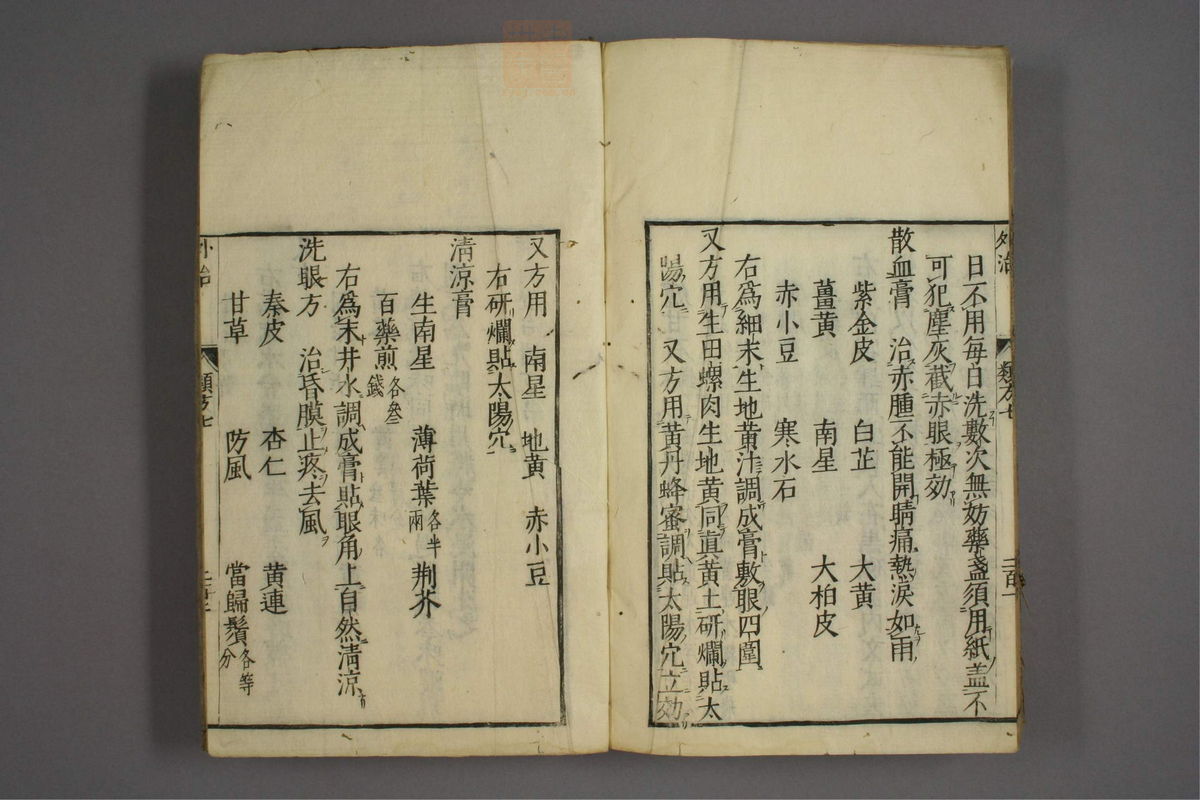 日不用每日洗數次無妨藥盞須用紙盖不
可犯塵灰截赤眼極効
散血膏 治赤腫不能開睛痛熱淚如雨
紫金皮 白芷 大黄
薑黄 南星 大柏皮
赤小豆 寒水石
右爲細末生地黄汁調成膏敷眼四圍
又方用生田螺肉生地黄同真黄土研爛貼太
陽穴 又方用黄丹蜂蜜調貼太陽穴立効
外治 類方七
又方用 南星 地黄 赤小豆
右研爛貼太陽穴
清涼膏
生南星 薄荷葉各半兩 荆芥
百藥煎各叁錢
右爲末井水調成膏貼眼角上自然清涼
洗眼方 治昏膜止疼去風
秦皮 杏仁 黄連
甘草 防風 當歸鬚各等分
外治 類方七